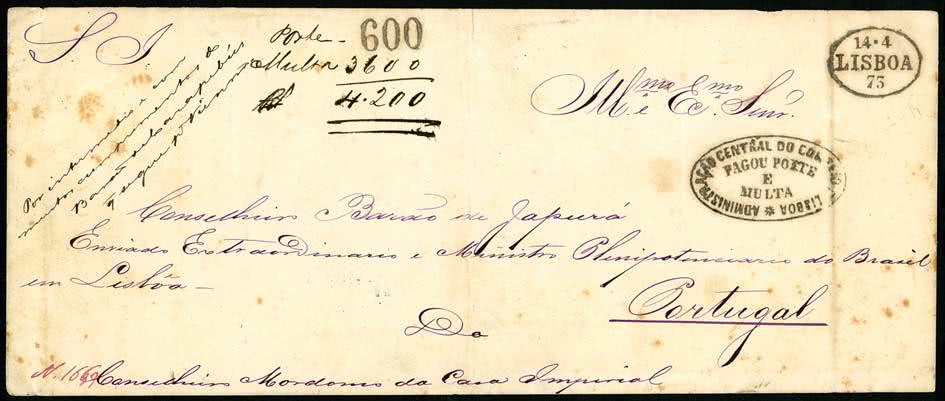 S. I.
Porte - 600
Multa 3600
4.200
14·4
LISBOA
73
Illmo e Exmo Snr.
ADMINISTRAÇÃO CENTRAL DO CORREIO LISBOA
PAGOU PORTE
E
MULTA
Por intermedio e com
muitos cumprimentos do
Barão
Conselheiro Barão de Japurá
Enviado Extraordinario e Ministro Plenipotenciario do Brasil
em Lisbôa -
Portugal
Do
N. 1669
Conselheiro Mordomo da Casa Imperial